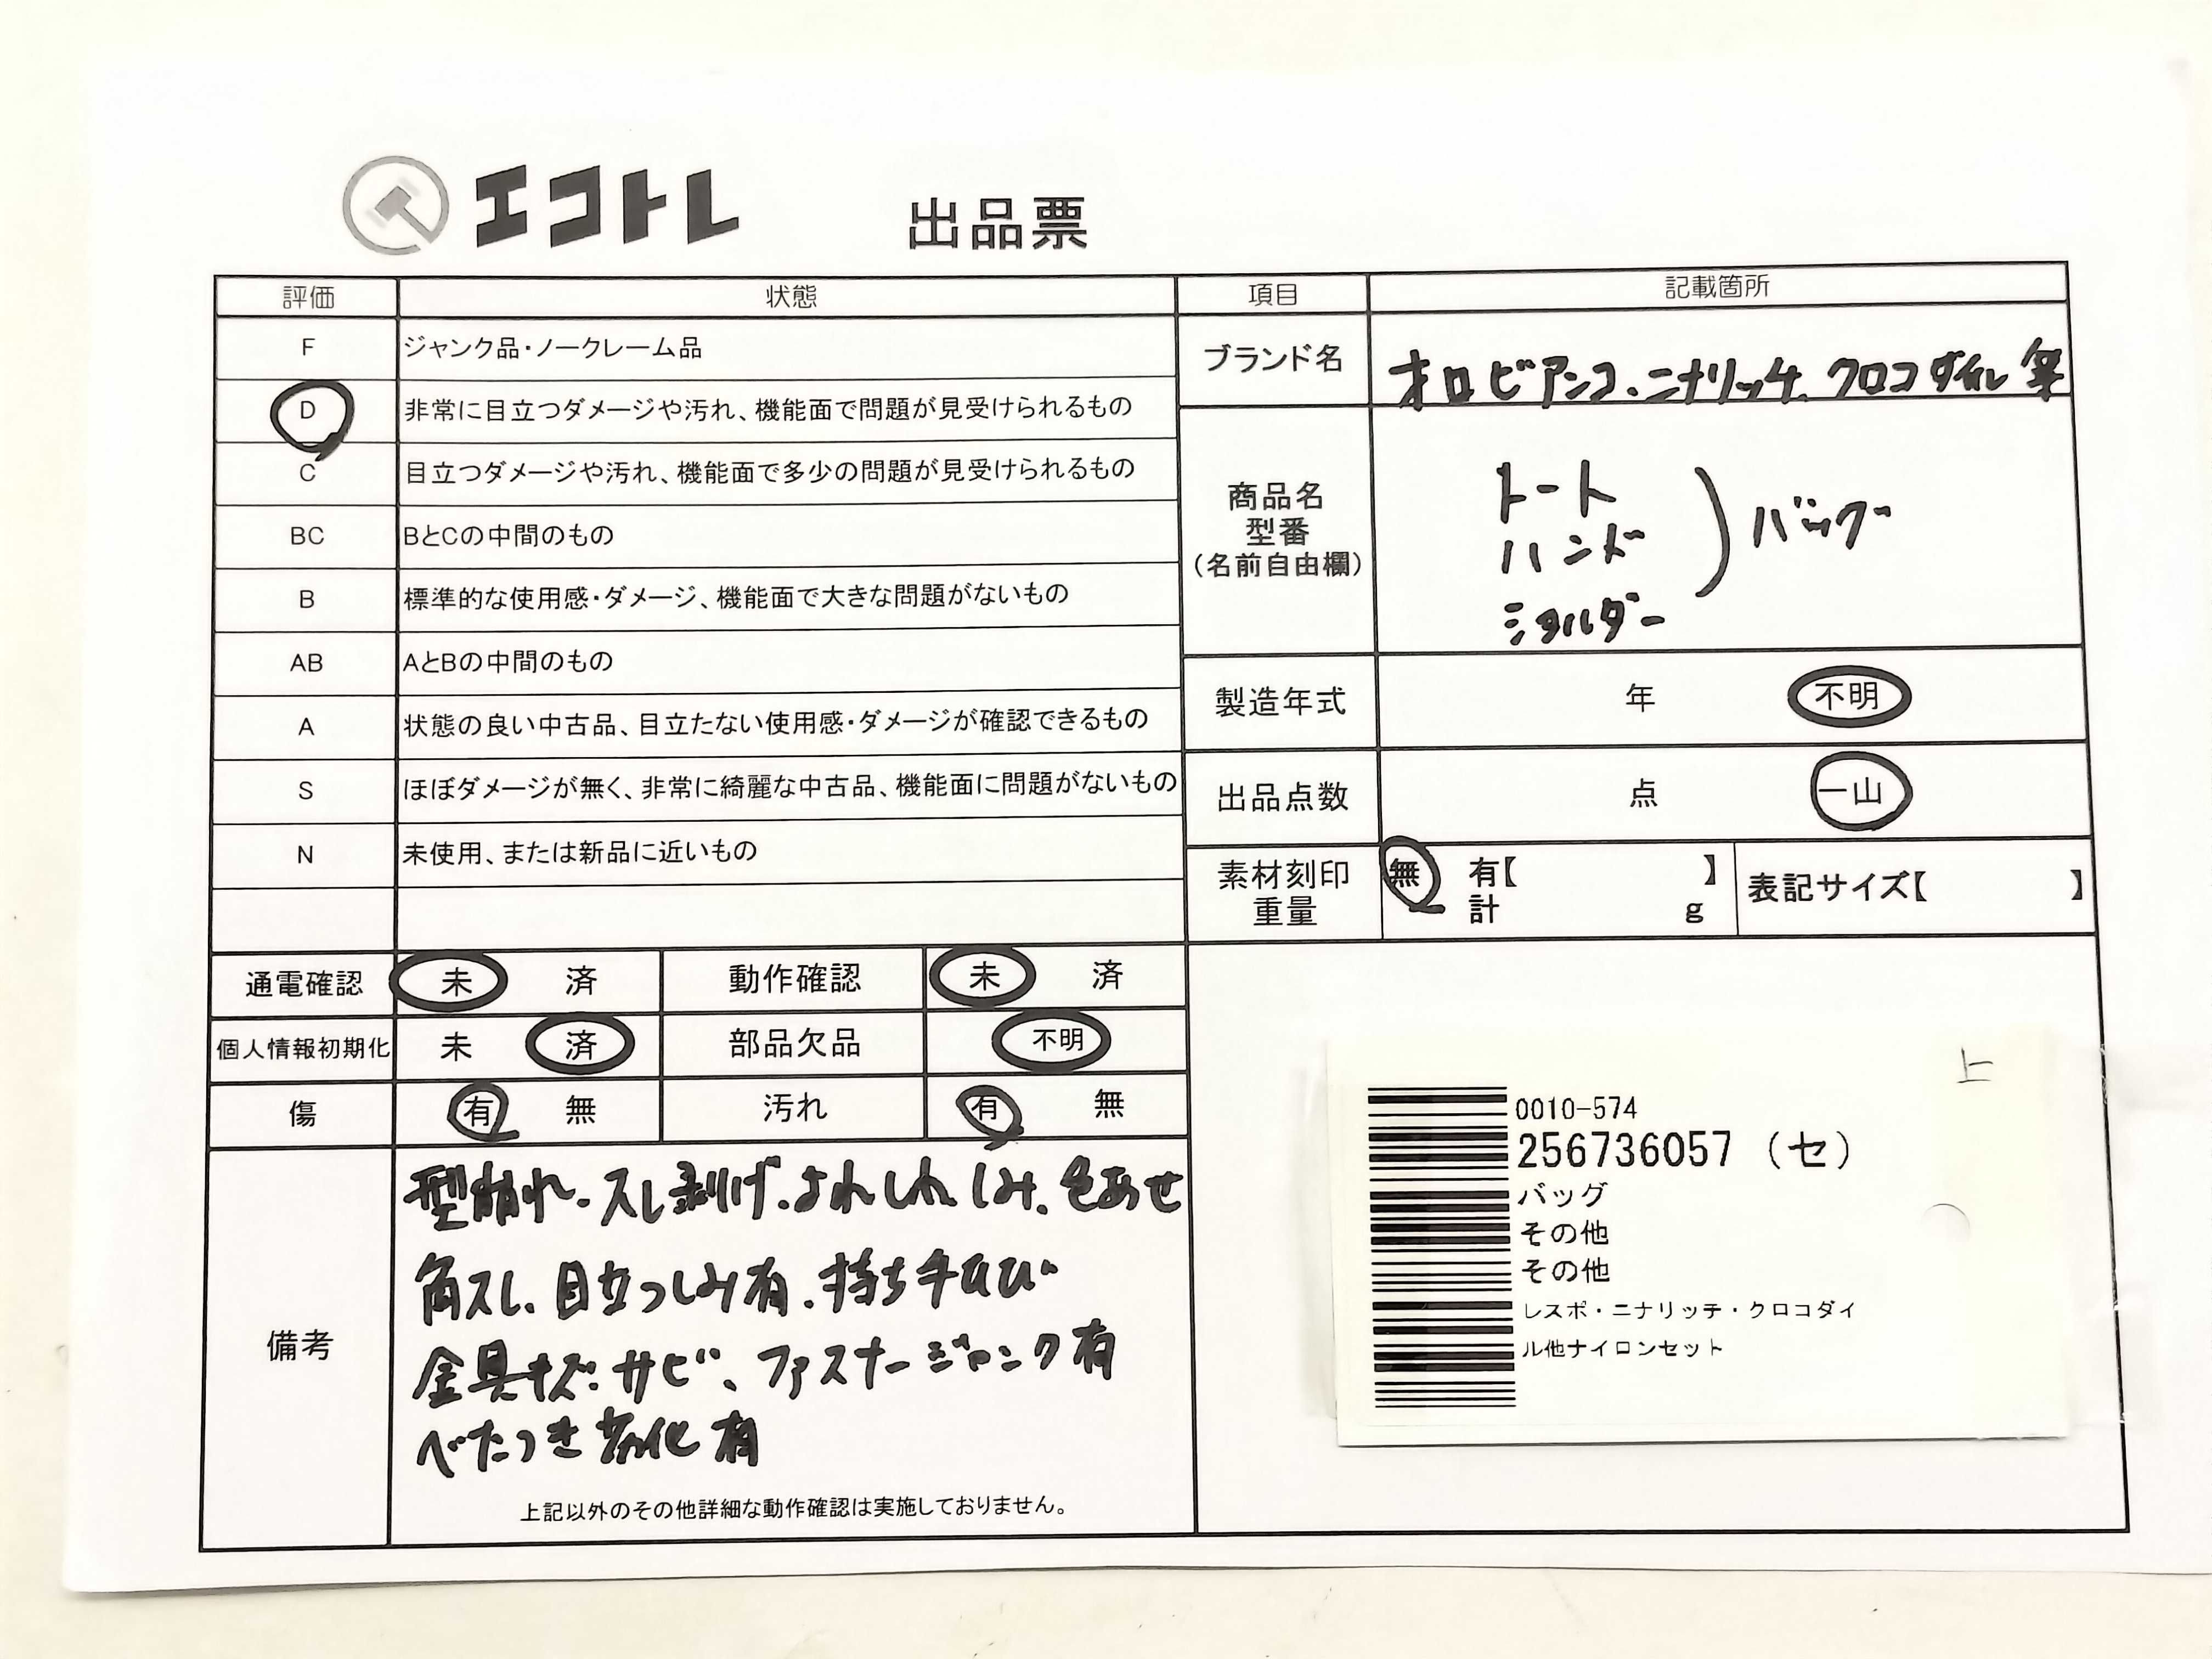 エコトレ 出品票
評価 状態 項目 記載箇所
F ジャンク品・ノークレーム品
D 非常に目立つダメージや汚れ、機能面で問題が見受けられるもの
C 目立つダメージや汚れ、機能面で多少の問題が見受けられるもの
BC BとCの中間のもの
B 標準的な使用感・ダメージ、機能面で大きな問題がないもの
AB AとBの中間のもの
A 状態の良い中古品、目立たない使用感・ダメージが確認できるもの
S ほぼダメージが無く、非常に綺麗な中古品、機能面に問題がないもの
N 未使用、または新品に近いもの
ブランド名 オロビアンコ.ニナリッチ.クロコダイル 等
商品名
型番
(名前自由欄)
トート
ハンド
ショルダー
バッグ
製造年式 年 不明
出品点数 点 一山
素材刻印 無 有【 】 表記サイズ【 】
重量 計 g
通電確認 未 済 動作確認 未 済
個人情報初期化 未 済 部品欠品 不明
傷 有 無 汚れ 有 無
備考
型崩れ.スレ剥げ.よれしわ しみ.色あせ
角スレ、目立つしみ有.持ち手ひび
金具キズ.サビ、ファスナージャンク有
べたつき劣化有
上記以外のその他詳細な動作確認は実施しておりません。
上
0010-574
256736057 (セ)
バッグ
その他
その他
レスポ・ニナリッチ・クロコダイ
ル他ナイロンセット